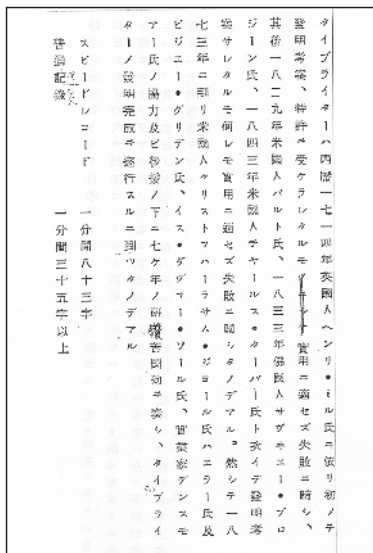 タイプライターハ西暦一七一四年英國人ヘンリ●ミル氏ニ依リ初メテ
發明考案、特許ヲ受ケラレタルモ實用ニ適セズ失敗ニ歸シ、
其後一八二九年米國人バルト氏、一八三三年佛國人サヴモエー●プロ
ジーン氏、一八四三年米國人チヤールス●ターバー氏ト次イデ發明考
案サレタルモ何レモ實用ニ適セズ失敗ニ歸シタノデアル。然シテ一八
七三年ニ到リ米國人クリストフハーラサム●ジョール氏ハエラー氏及
ビジエー●グリデン氏、イス●ダヴブー●ソール氏、實業家デンスモ
アー氏ノ協力及ビ後援ノ下ニ七ケ年ノ研鑽苦鬪効ヲ奏シ、タイプライ
ターノ發明完成ヲ遂行スルニ到ツタノデアル
スピードレコード 一分間八十三字
普通記錄 一分間三十五字以上